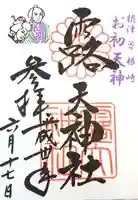 摂津 曽根崎
お初天神
露
天神社
参拝
平成廿年
六月十七日